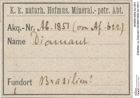 K. k. naturh. Hofmus. Mineral.-petr. Abt.
Akq.-Nr. Ab. 1851
Name Diamant
Fundort Brasilien